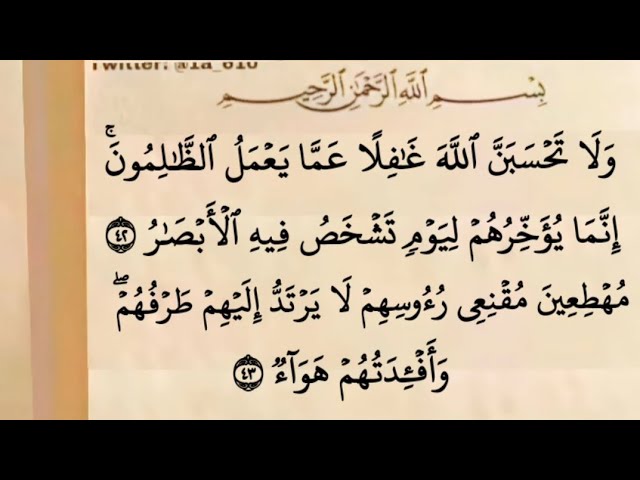 Twitter: @1a_610
بِسْمِ اللَّهِ الرَّحْمَٰنِ الرَّحِيمِ
وَلَا تَحْسَبَنَّ ٱللَّهَ غَٰفِلًا عَمَّا يَعْمَلُ ٱلظَّٰلِمُونَۚ
إِنَّمَا يُؤَخِّرُهُمْ لِيَوْمٖ تَشْخَصُ فِيهِ ٱلْأَبْصَٰرُ ٤٢
مُهْطِعِينَ مُقْنِعِي رُءُوسِهِمْ لَا يَرْتَدُّ إِلَيْهِمْ طَرْفُهُمْۖ
وَأَفْـِٔدَتُهُمْ هَوَآءٞ ٤٣